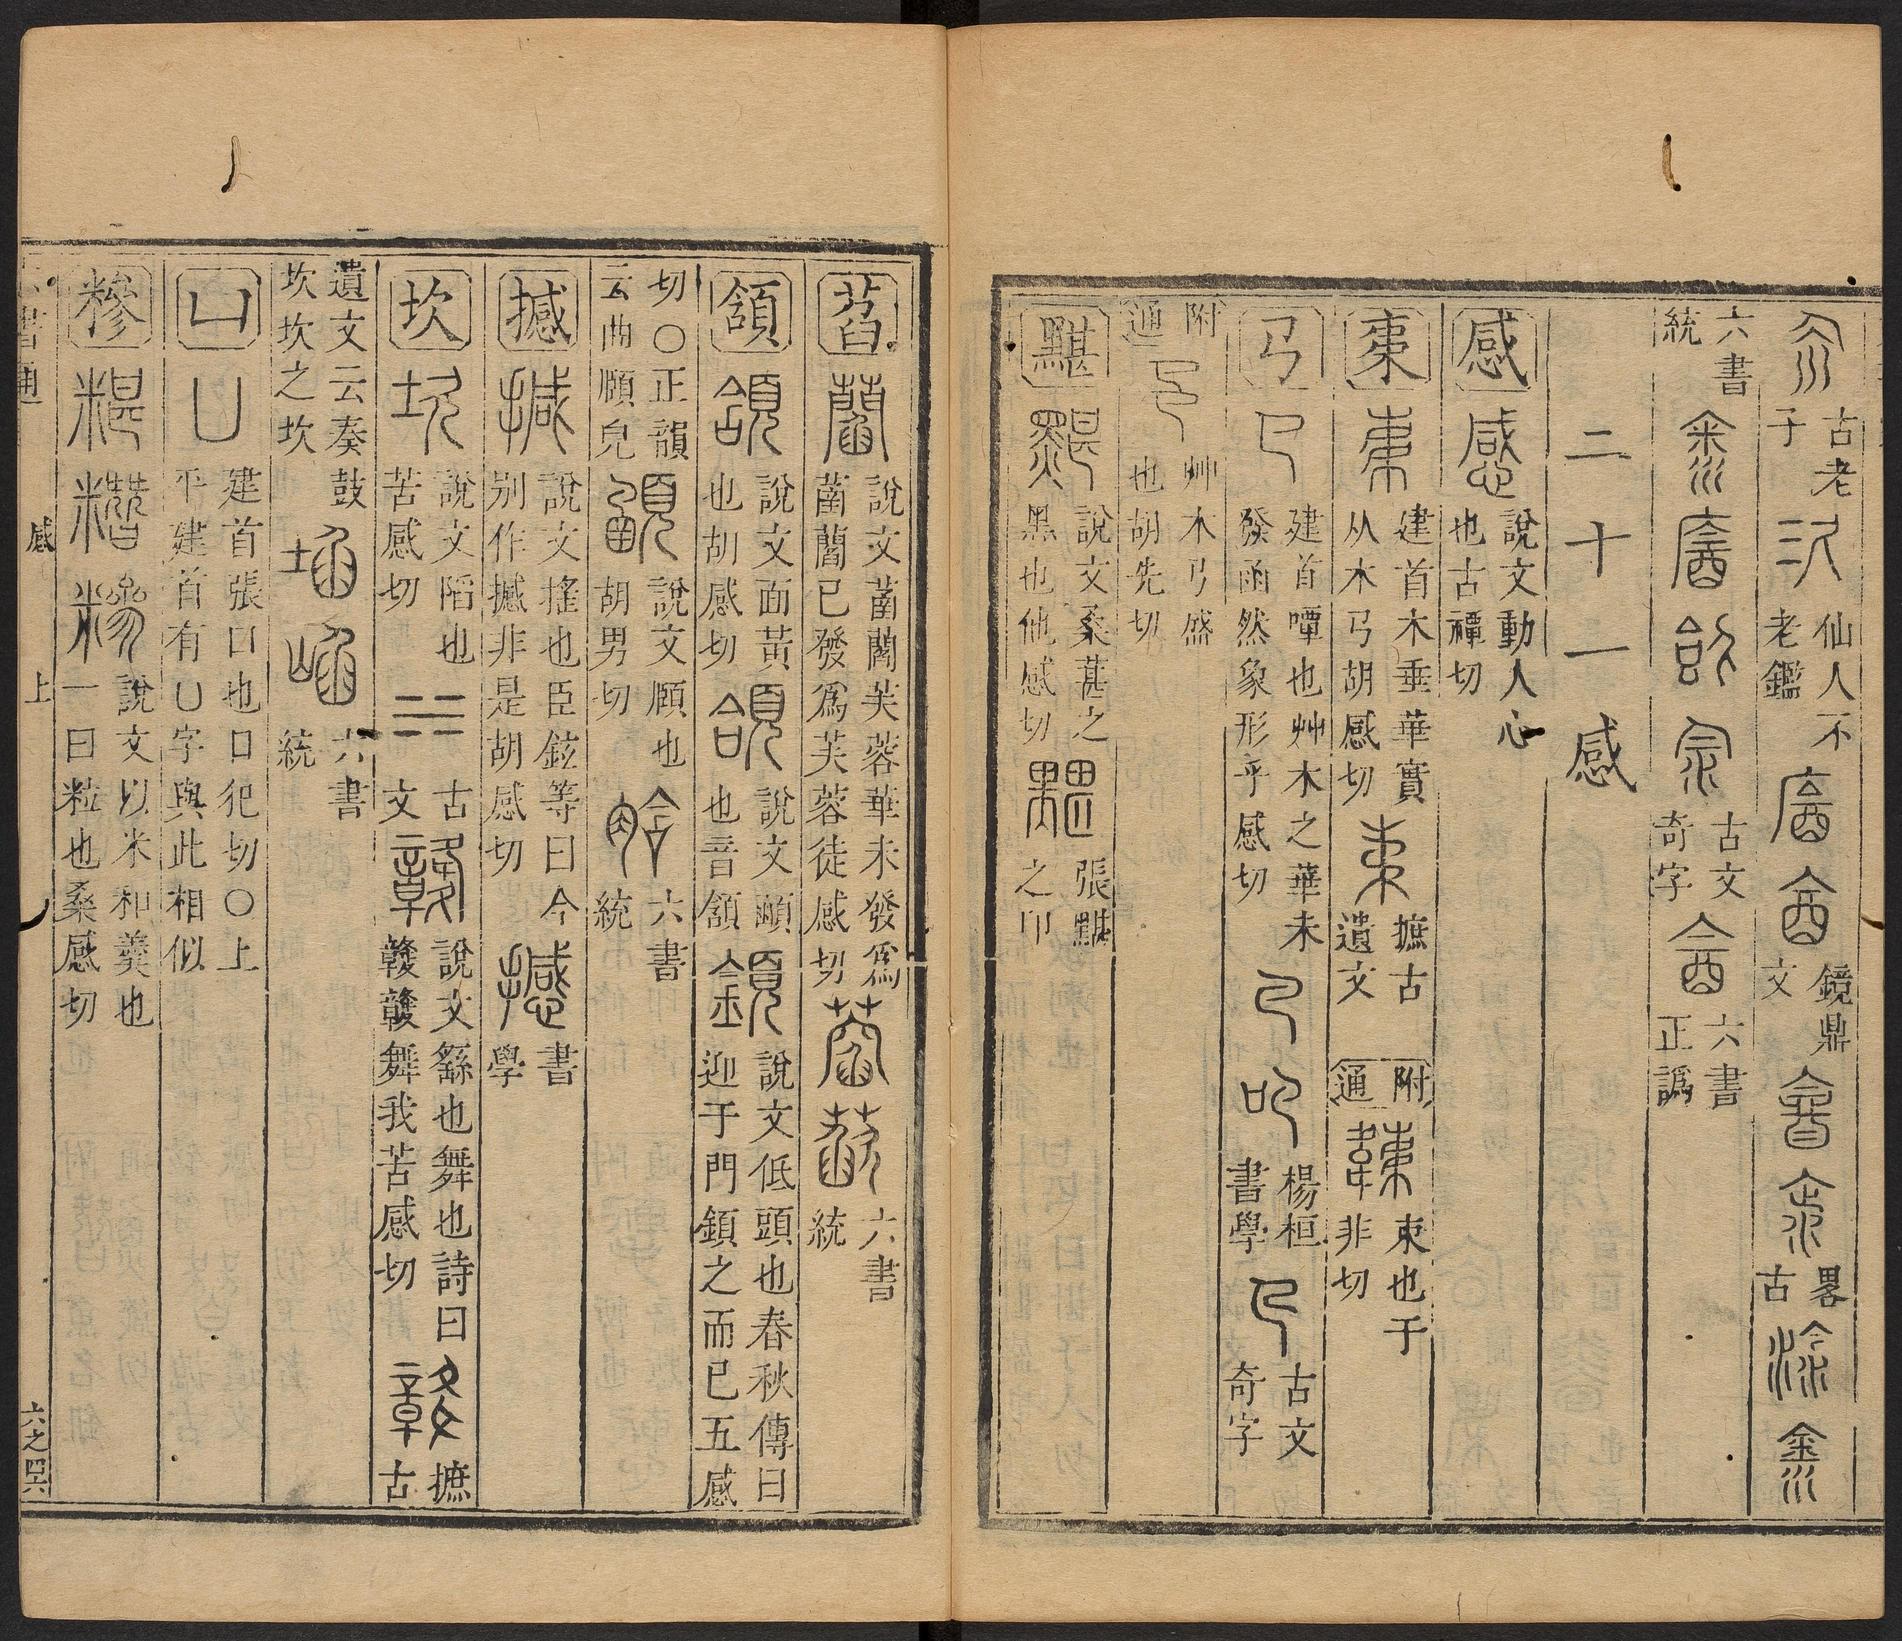 古老子 仙人不老鑑 鏡鼎文 畧古
六書統 古文奇字 六書正譌
二十一感
感 感 說文動人心也古禫切
㯥 建首木垂華實从木𢎘胡感切 摭古遺文 附通 束也于非切
𢎘 建首嘾也艸木之華未發函然象形乎感切 楊桓書學 古文奇字
附通 艸木𢎘盛也胡先切
黮 黮 說文桑葚之黑也他感切 張黮之印
萏 藺 說文菡藺芙蓉華未發爲菡藺已發爲芙蓉徒感切 六書統
頷 頷 說文面黃也胡感切 說文顄也音頷 顉 說文低頭也春秋傳曰迎于門顉之而已五感
切○正韻云曲頤皃 顄 說文頤也胡男切 六書統
撼 揻 說文搖也臣鉉等曰今別作撼非是胡感切 撼 書學
坎 坎 說文陷也苦感切 ☵ 古文 說文繇也舞也詩曰竷竷舞我苦感切 摭古
遺文云奏鼓坎坎之坎 埳 六書統
凵 凵 建首張口也口犯切○上平建首有凵字與此相似
糝 糂 說文以米和羹也一曰粒也桑感切
六書通 感 上 六之四六